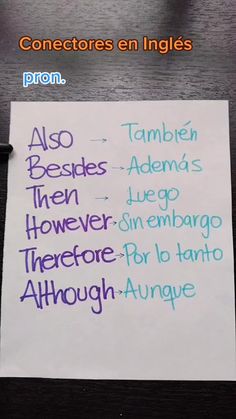 Conectores en Inglés
pron.
Also → También
Besides → Además
Then → Luego
However → Sin embargo
Therefore → Por lo tanto
Although → Aunque